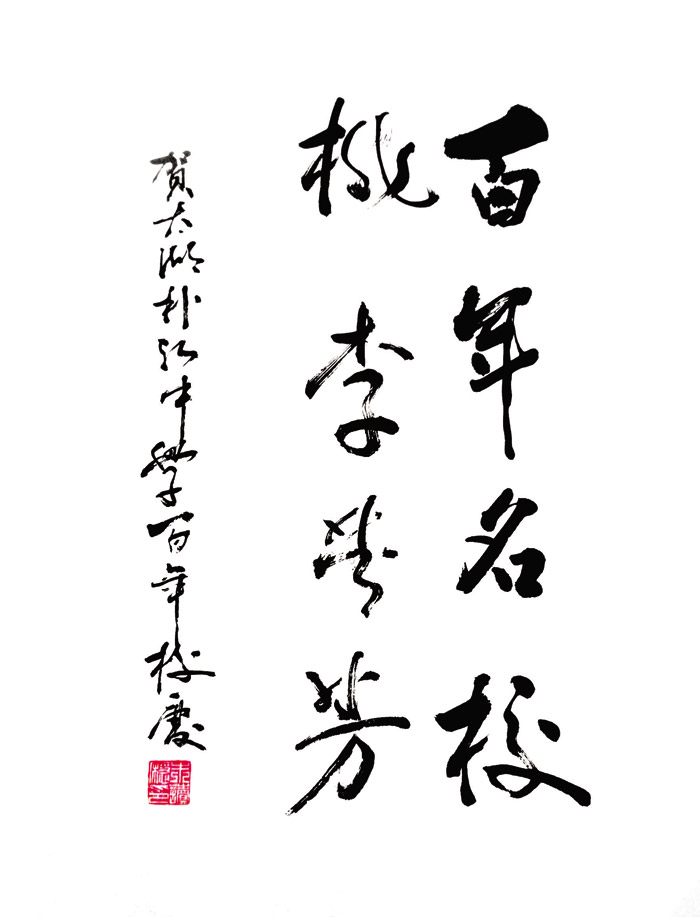 百年名校
桃李芬芳
賀太湖朴初中學百年校慶